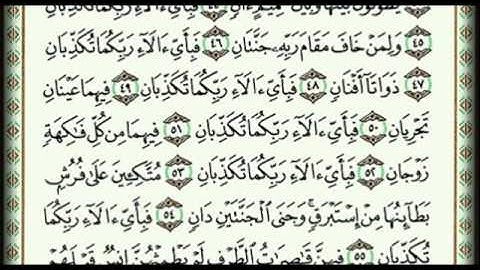 يَطُوفُونَ بَيْنَهَا وَبَيْنَ حَمِيمٍ ءَانٍ ٤٤ فَبِأَىِّ ءَالَآءِ رَبِّكُمَا تُكَذِّبَانِ
٤٥ وَلِمَنْ خَافَ مَقَامَ رَبِّهِۦ جَنَّتَانِ ٤٦ فَبِأَىِّ ءَالَآءِ رَبِّكُمَا تُكَذِّبَانِ
٤٧ ذَوَاتَآ أَفْنَانٍ ٤٨ فَبِأَىِّ ءَالَآءِ رَبِّكُمَا تُكَذِّبَانِ ٤٩ فِيهِمَا عَيْنَانِ
تَجْرِيَانِ ٥٠ فَبِأَىِّ ءَالَآءِ رَبِّكُمَا تُكَذِّبَانِ ٥١ فِيهِمَا مِن كُلِّ فَٰكِهَةٍ
زَوْجَانِ ٥٢ فَبِأَىِّ ءَالَآءِ رَبِّكُمَا تُكَذِّبَانِ ٥٣ مُتَّكِـِٔينَ عَلَىٰ فُرُشٍۭ
بَطَآئِنُهَا مِنْ إِسْتَبْرَقٍ ۚ وَجَنَى ٱلْجَنَّتَيْنِ دَانٍ ٥٤ فَبِأَىِّ ءَالَآءِ رَبِّكُمَا
تُكَذِّبَانِ ٥٥ فِيهِنَّ قَٰصِرَٰتُ ٱلطَّرْفِ لَمْ يَطْمِثْهُنَّ إِنسٌ قَبْلَهُمْ